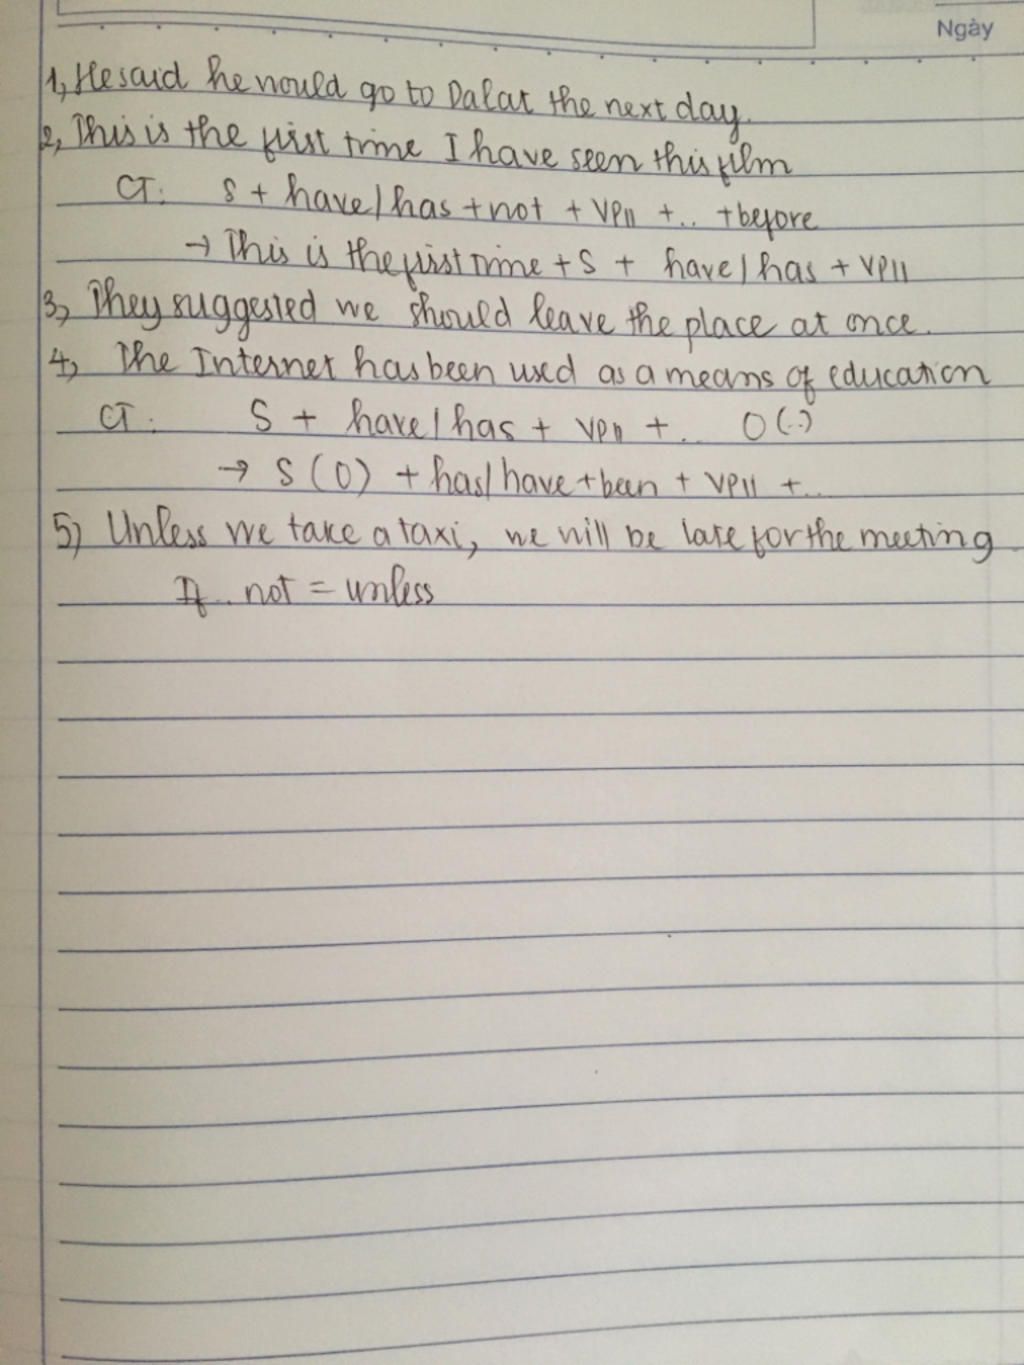 Ngày
1, He said he would go to Dalat the next day.
2, This is the first time I have seen this film
CT: S + have/has + not + VPII + .. + before
→ This is the first time + S + have/has + VPII
3, They suggested we should leave the place at once.
4, The Internet has been used as a means of education
CT: S + have/has + VPII + .. O (..)
→ S (O) + has/have + been + VPII + ..
5) Unless we take a taxi, we will be late for the meeting
If .. not = unless